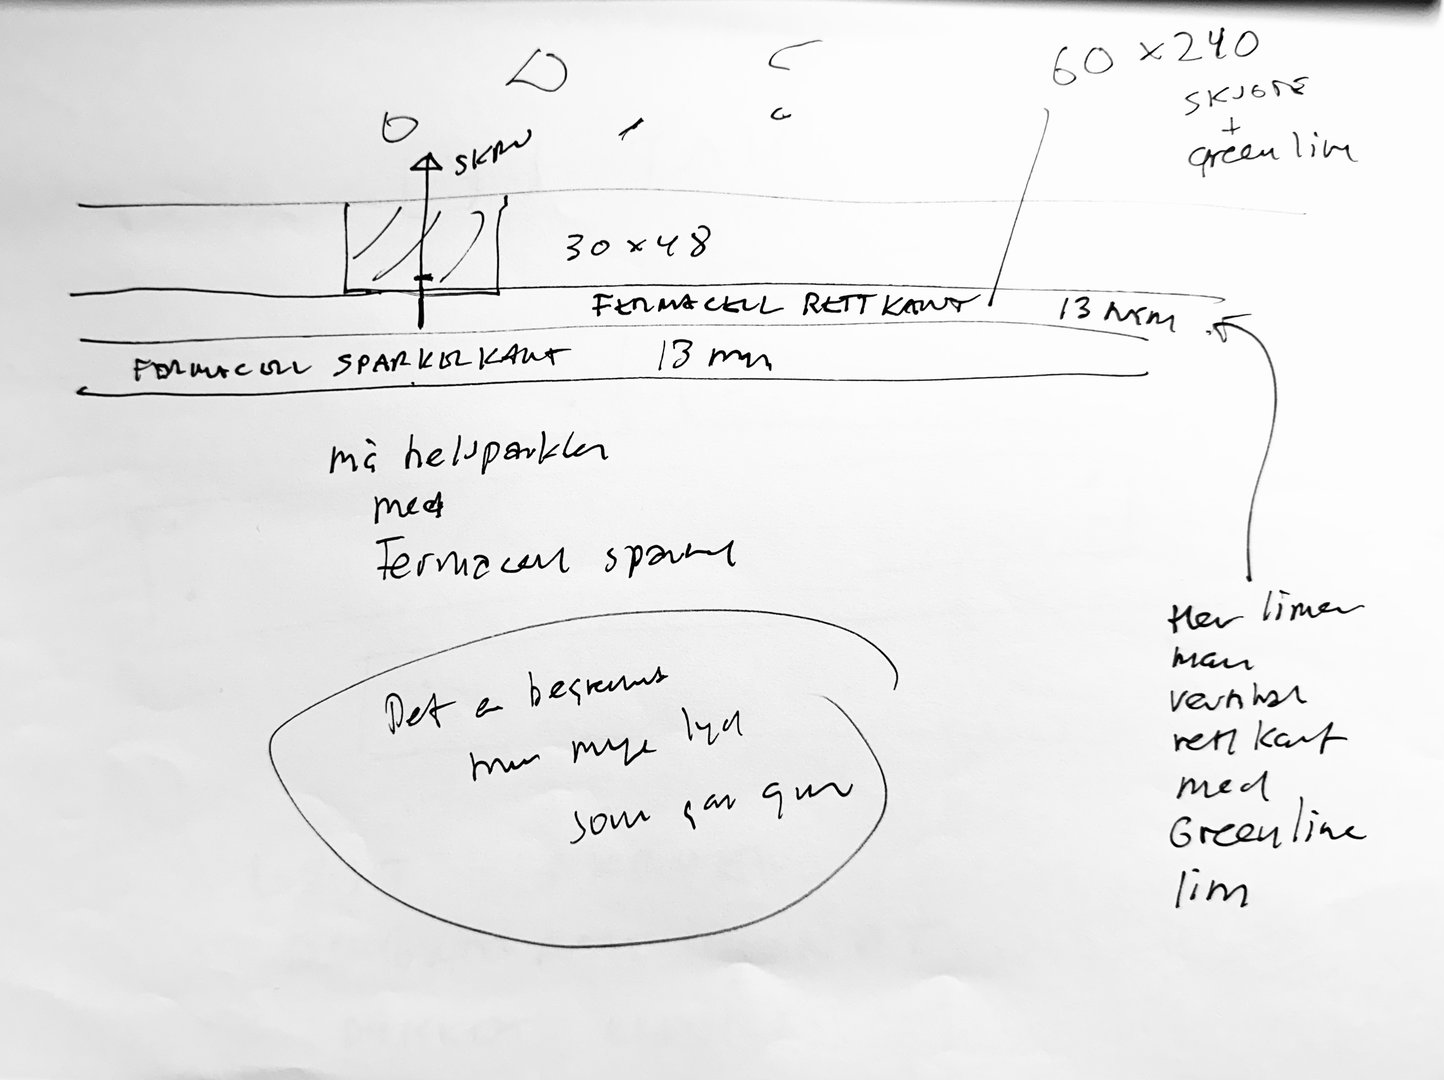 60 x 240
SKJØTE
+
Green lim
SKRU
30 x 48
FERMACELL RETTKANT 13 mm
FERMACELL SPARKELKANT 13 mm
må helsparkles
med
Fermacell sparkel
Det er begrenset
hvor mye lyd
som går gjennom
Her limer
man
rett kant
med
Greenline
lim